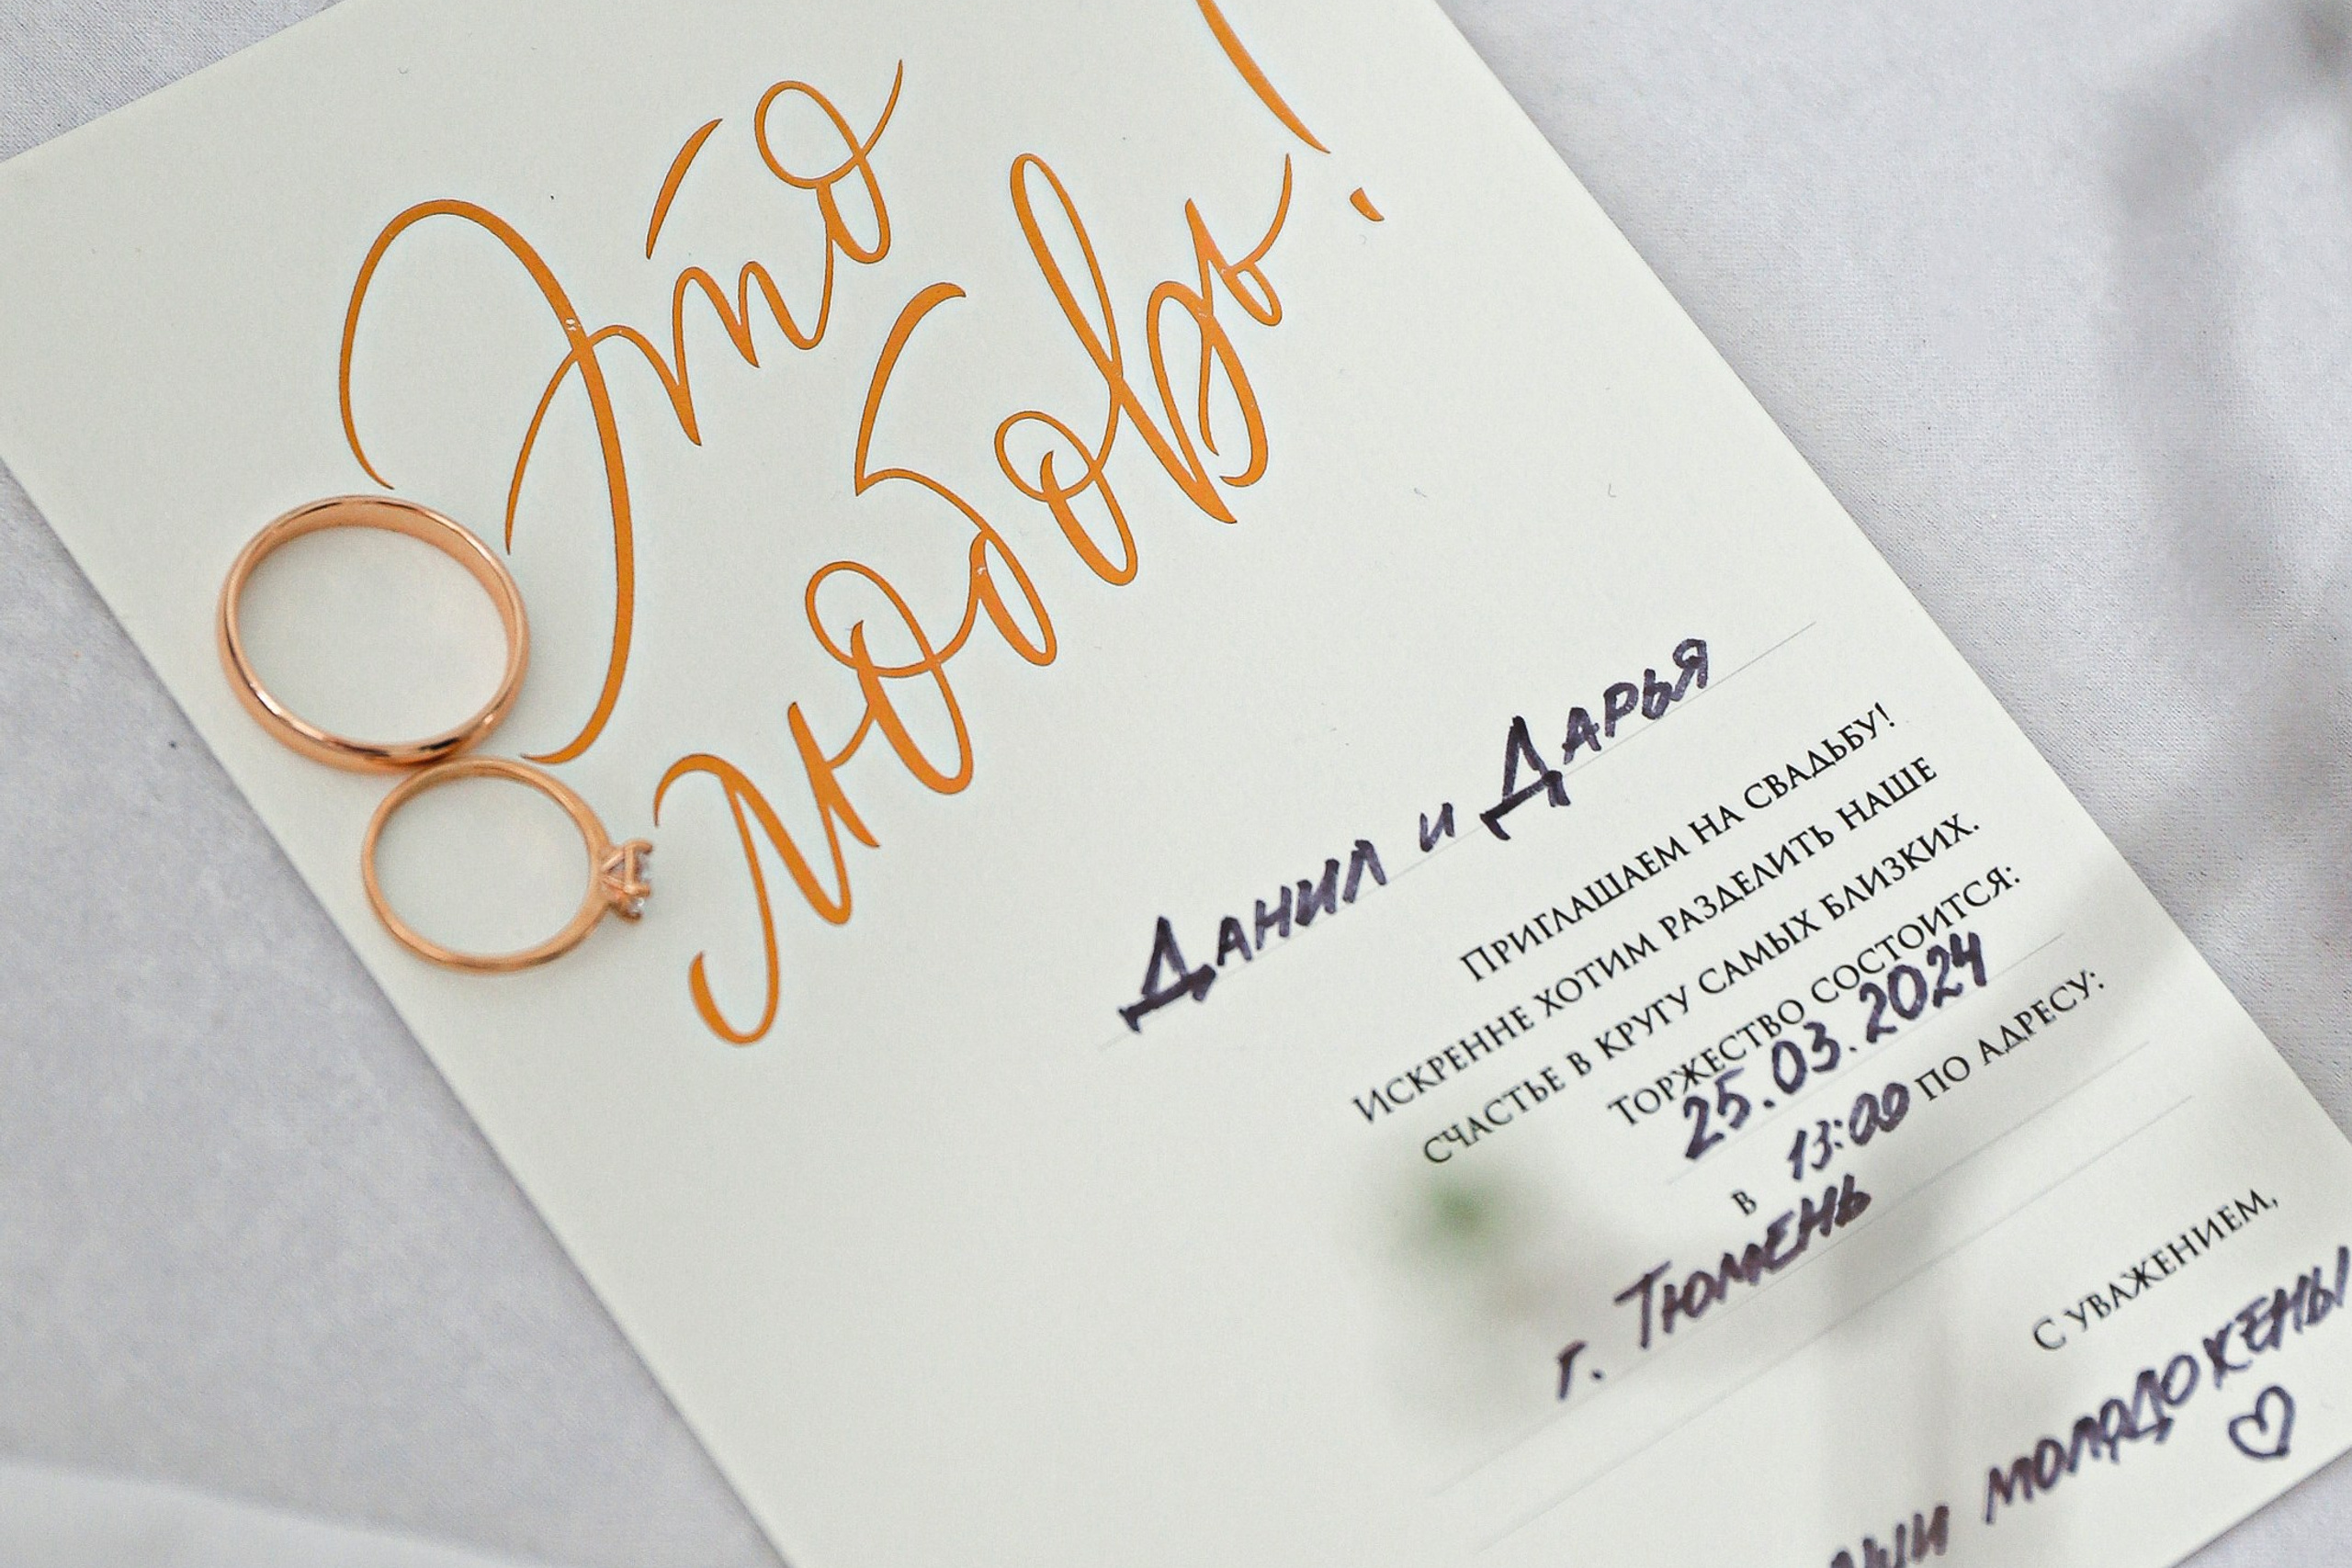 Это
любовь!
Данил и Дарья
Приглашаем на свадьбу!
Искренне хотим разделить наше
счастье в кругу самых близких.
Торжество состоится:
25.03.2024
в 13:00 по адресу:
г. Тюмень
С уважением,
молодожены